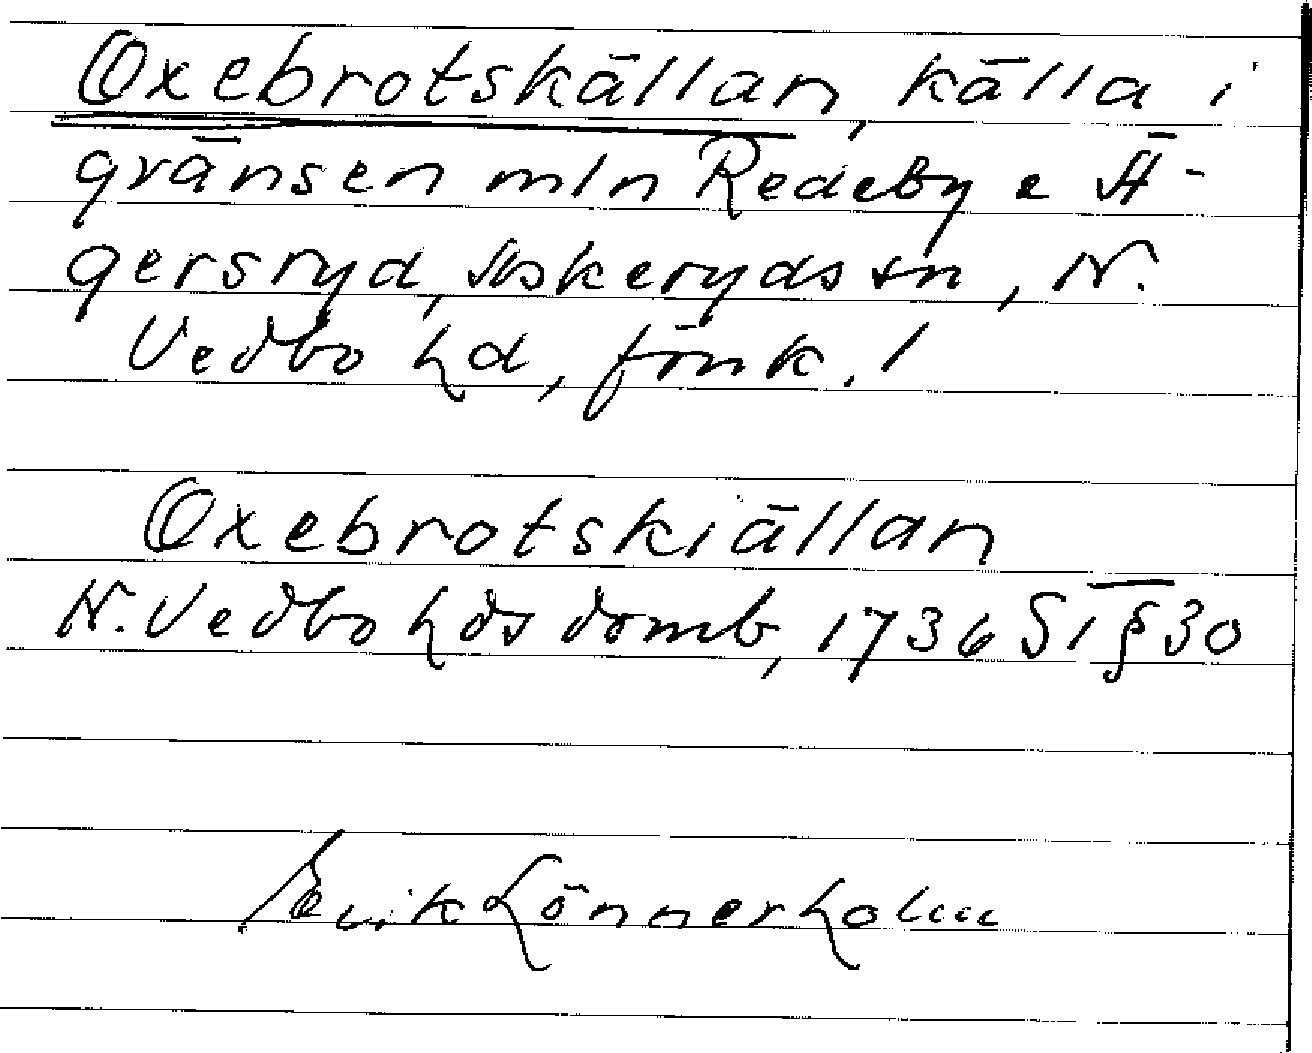 Oxebrotskällan, källa i
gränsen mln Redeby o Ä-
gersryd, Askeryds sn, N.
Vedbo hd, Jönk. l
Oxebrotskiällan
N. Vedbo hds domb, 1736 S1 § 30
Erik Lönnerholm